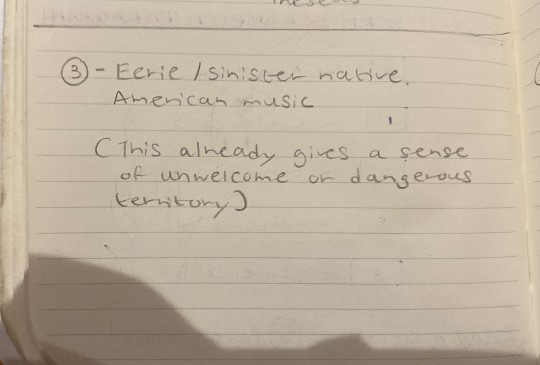 ③ - Eerie / sinister native
American music
(This already gives a sense
of unwelcome or dangerous
territory)